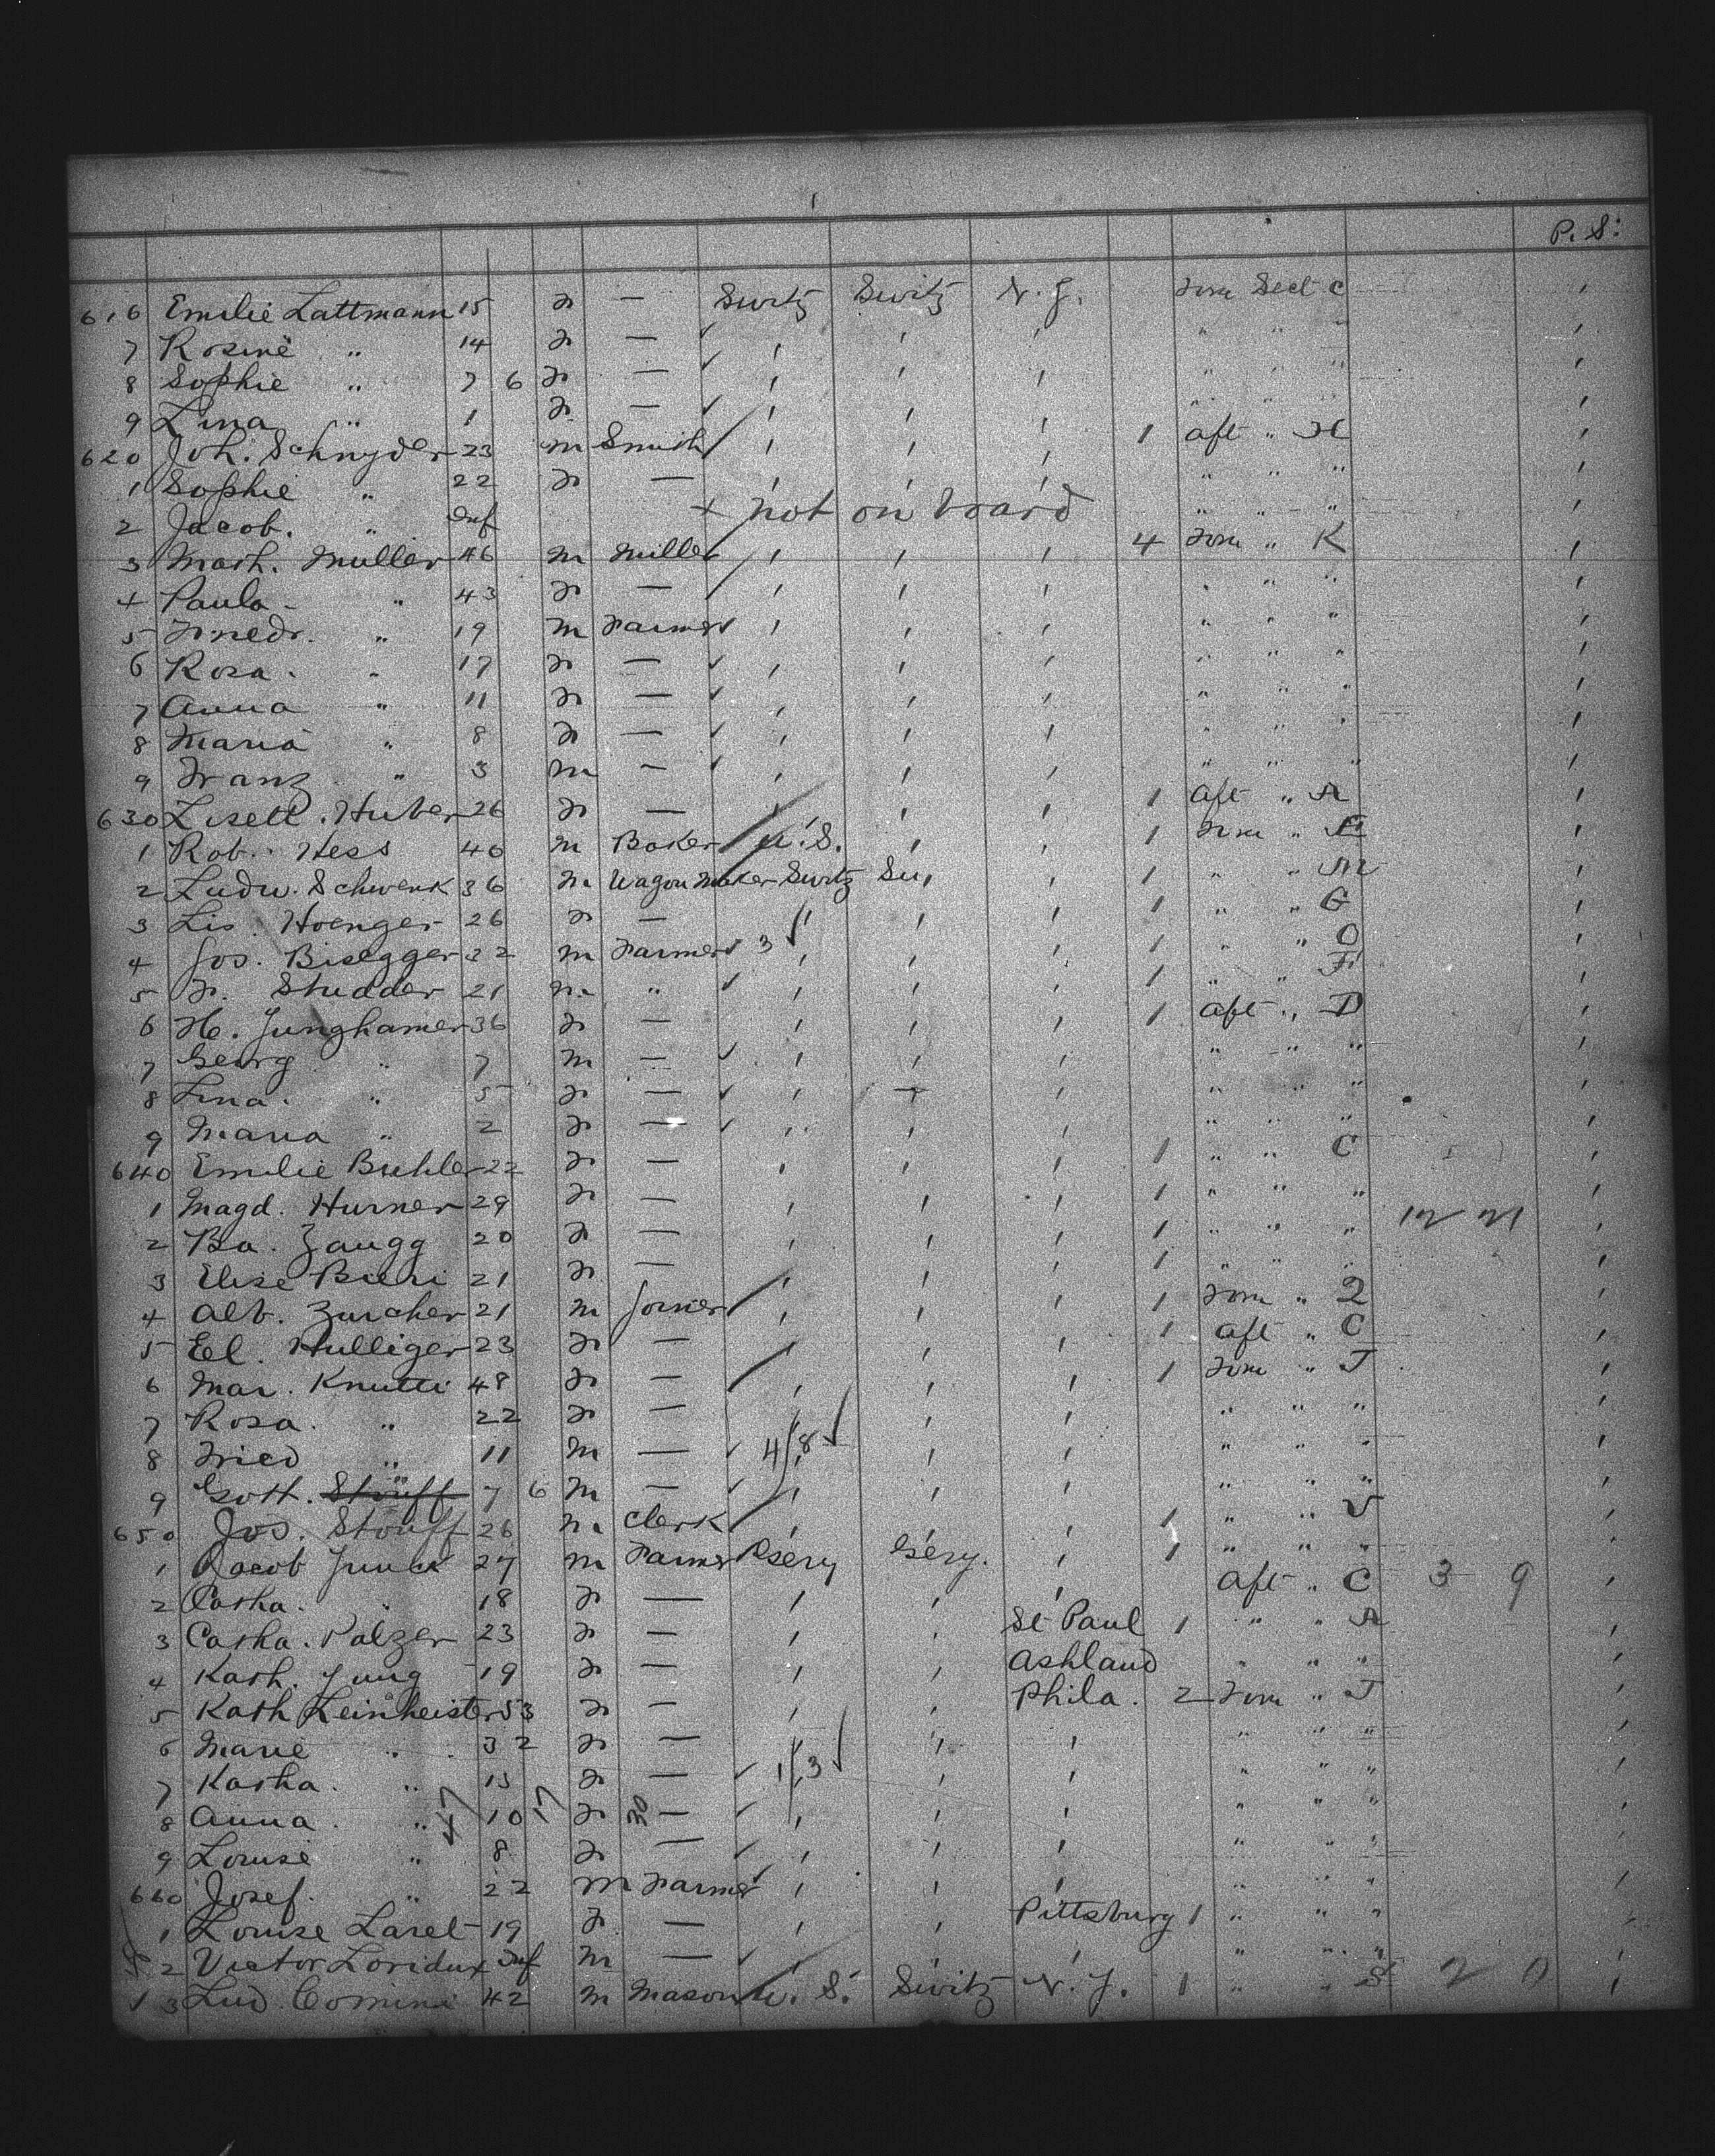 P. S.
616 Emilie Lattmann 15 F — Switz Switz N. Y. Forw Sect C
7 Rosine " 14 F — " " "
8 Sophie " 7 6 F — " " "
9 Lina " 1 F — " " "
620 Joh. Schnyder 23 m Smith 1 aft " H
1 Sophie " 22 F — " " "
2 Jacob. " Inf + not on board " " "
3 Math. Müller 46 m Miller 4 Forw " K
4 Paula " 43 F — " " "
5 Friedr. " 19 m Farmer " " "
6 Rosa. " 17 F — " " "
7 Anna " 11 F — " " "
8 Maria " 8 F — " " "
9 Franz " 3 m — " " "
630 Lisett. Huber 26 F — 1 aft " A
1 Rob. Hess 40 m Baker U. S. 1 Forw "
2 Ludw. Schwenk 36 m Wagon Maker Switz Sw 1 " " M
3 Lis. Hoenger 26 F — 1 " " G
4 Jos. Bisegger 22 m Farmer 3 1 " " O
5 F. Studder 21 m " 1 " " F
6 H. Junghamer 36 F — 1 aft " D
7 Georg " 7 m — " " "
8 Lina. " 5 F — " " "
9 Maria " 2 F — " " "
640 Emilie Buhler 22 F — 1 " " C
1 Magd. Hurner 29 F — 1 " " "
2 Ba. Zaugg 20 F — 1 " " " 12 21
3 Elise Bieri 21 F — 1 " " "
4 Alb. Zurcher 21 m Joiner 1 Forw " Q
5 El. Hulliger 23 F — 1 aft " C
6 Mar. Knutti 48 F — 1 Forw " T
7 Rosa. " 22 F — " " "
8 Fried " 11 m — 4/8 " " "
9 Gott. " 7 6 m — " " "
650 Jos. Stouff 26 m Clerk 1 " " V
1 Jacob Junck 27 m Farmer Gery Gery. 1 " " "
2 Catha. " 18 F — aft " C 3 9
3 Catha. Palzer 23 F — St Paul 1 " " A
4 Kath. Jung 19 F — Ashland " " "
5 Kath Leinheister 53 F — Phila. 2 Forw " T
6 Marie " 32 F — " " "
7 Katha. " 13 F — 1/3 " " "
8 Anna " 47 10 17 F 30 — " " "
9 Louise " 8 F — " " "
660 Josef. " 22 m Farmer " " "
1 Louise Laret 19 F — Pittsburg 1 " " "
2 Victor Loridux Inf m — " " "
3 Lud. Comini 42 m Mason U. S. Switz N. Y. 1 " " S 2 0